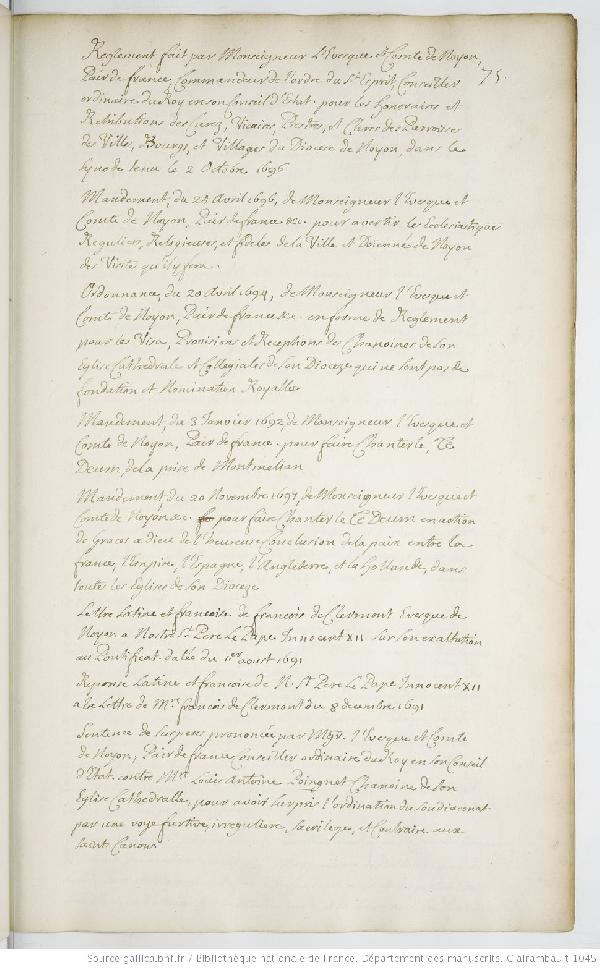 Reglement fait par Monseigneur l'Evesque et Comte de Noyon,
Pair de france, Commandeur de l'ordre du St Esprit, Conseiller
75.
ordinaire du Roy en son Conseil d'Etat. pour les honoraires et
Retributions des Curez, Vicaires, Prestres, et Clercs des Parroisses
des Villes, Bourgs, et Villages du Diocese de Noyon, dans le
synode tenu le 2 Octobre 1696
Mandement, du 25 Avril 1696, de Monseigneur l'Evesque et
Comte de Noyon, Pair de france &c. pour avertir les Ecclesiastiques
Reguliers, Religieuses, et fideles de la Ville et Doienné de Noyon
des Visites qu'il y fera.
Ordonnance, du 20 Avril 1694, de Monseigneur l'Evesque et
Comte de Noyon, Pair de france &c. en forme de Reglement
pour les Visa, Provisions et Receptions des Chanoines de son
Eglise Cathedrale et Collegiales de son Dioceze qui ne sont pas de
fondation et Nomination Royalle
Mandement, du 3 Janvier 1692, de Monseigneur l'Evesque et
Comte de Noyon, Pair de france. pour faire Chanter le, Te
Deum, de la prise de Montmelian
Mandement du 20 Novembre 1697, de Monseigneur l'Evesque et
Comte de Noyon &c. pour faire Chanter le Te Deum en action
de Graces a dieu de l'heureuse Conclusion de la paix entre la
france, l'Empire, l'Espagne, l'Angleterre, et la Hollande, dans
toutes les Eglises de son Dioceze
Lettre Latine et francoise de francois de Clermont Evesque de
Noyon a Nostre St Pere Le Pape Innocent XII sur son exaltation
au Pontificat datée du 1er aoust 1691
Reponse Latine et francoise de N. St Pere Le Pape Innocent XII
a la Lettre de Mre francois de Clermont du 8 decembre 1691
Sentence de suspens prononcée par Mgr. l'Evesque et Comte
de Noyon, Pair de france Conseiller ordinaire du Roy en son Conseil
d'Etat. contre Mre Louis Antoine Poingnet Chanoine de son
Eglise Cathedralle, pour avoir surpris l'ordination du soudiaconat
par une voye furtive, irreguliere, sacrilege, et Contraire aux
saints Canons.
Source gallica.bnf.fr / Bibliothèque nationale de France. Département des manuscrits. Clairambault 1045